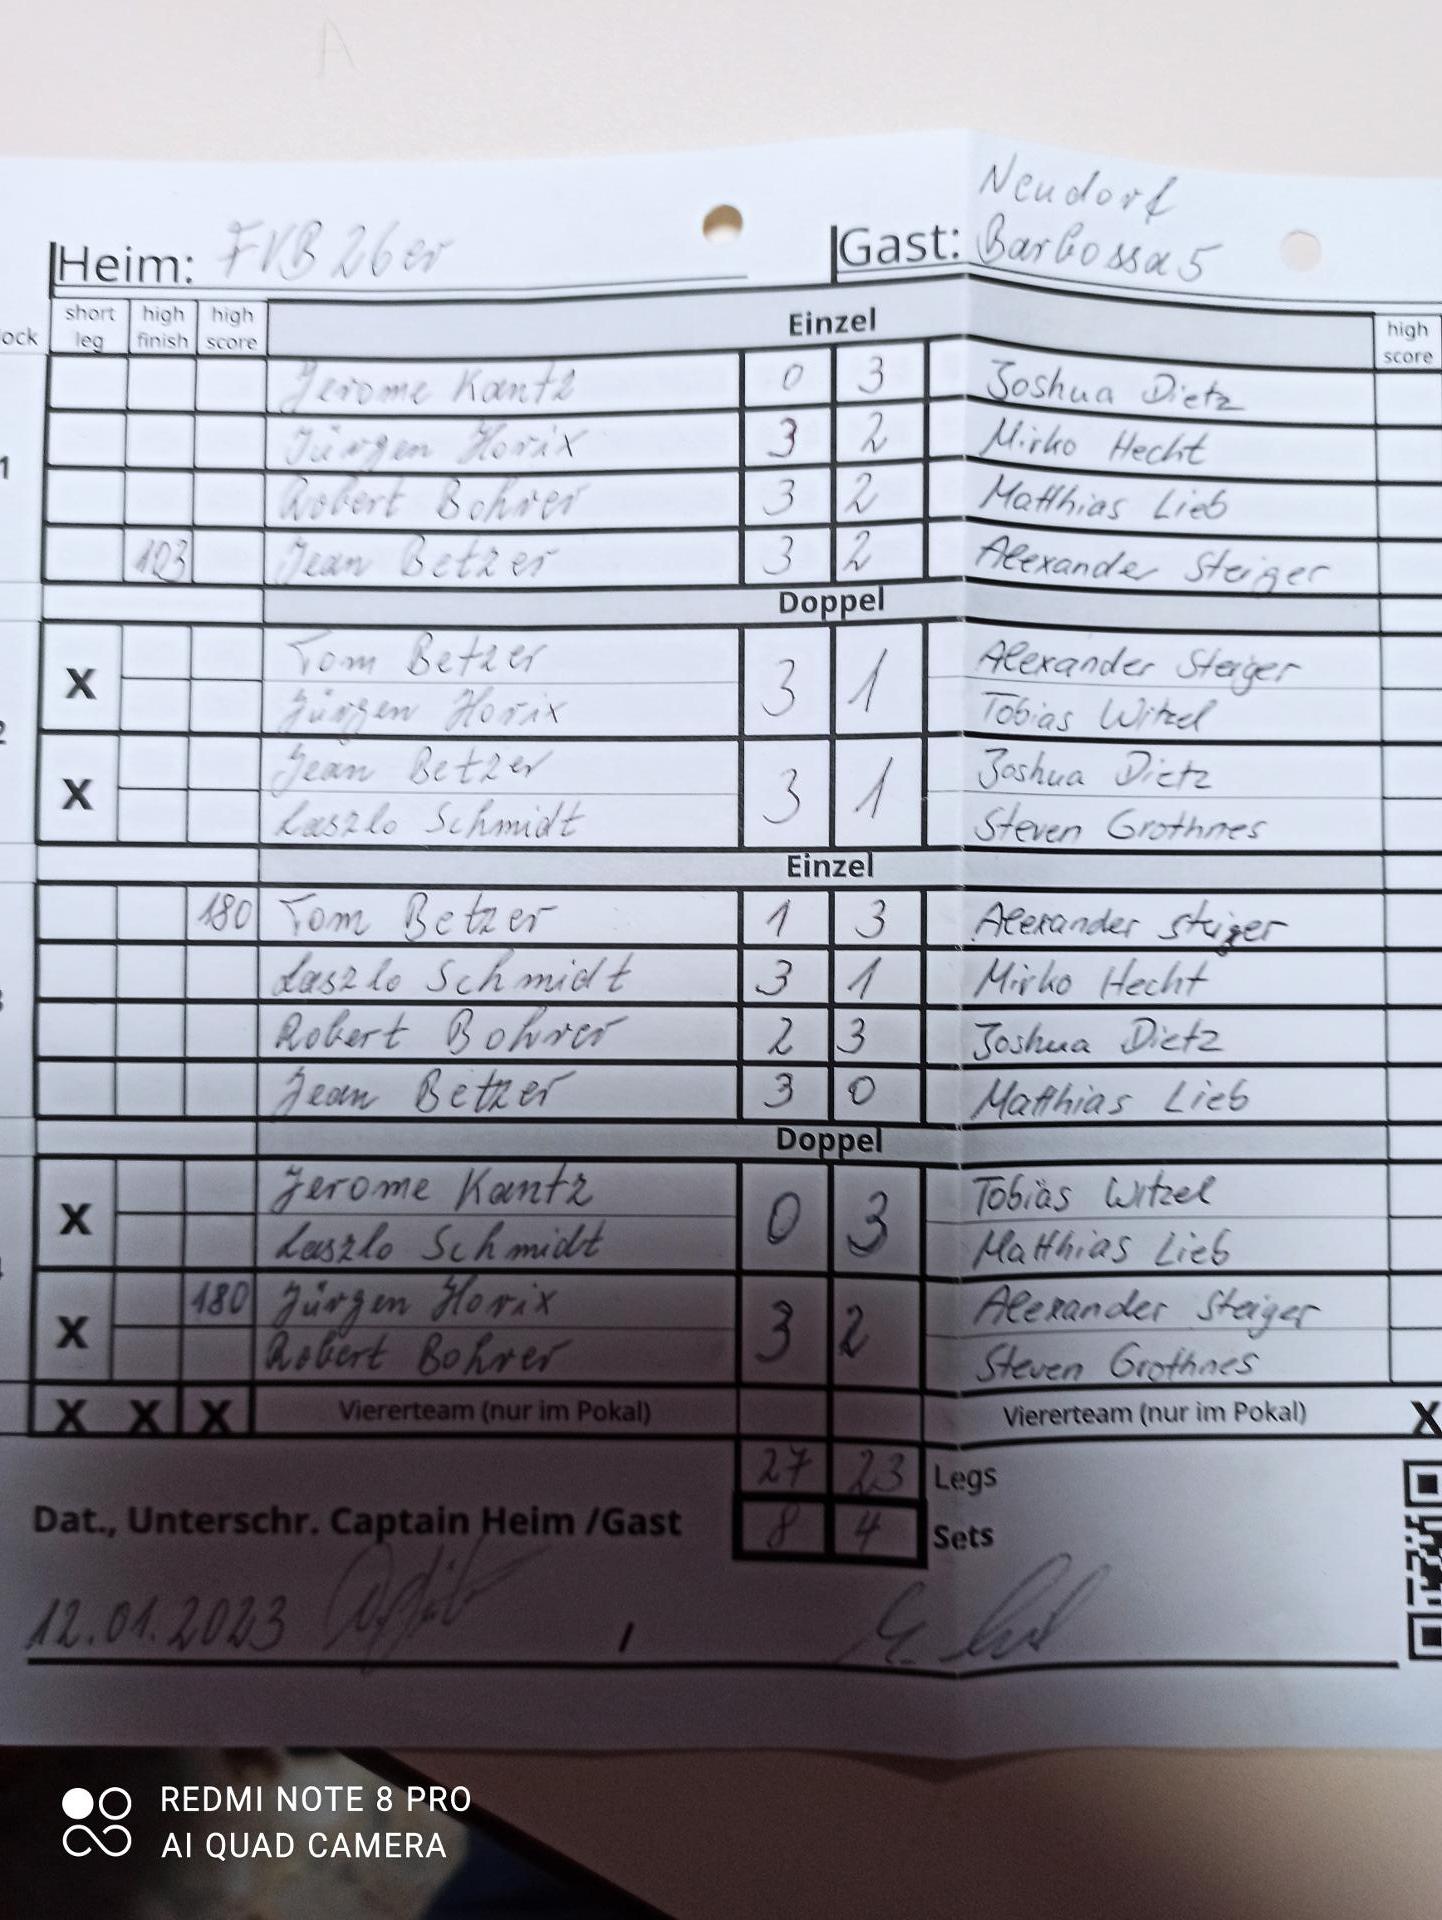 Neudorf
Heim: FVB 26er Gast: Barbossa 5
ock short leg high finish high score Einzel high score
Jerome Kantz 0 3 Joshua Dietz
1 Jürgen Horix 3 2 Mirko Hecht
Robert Bohrer 3 2 Matthias Lieb
103 Jean Betzer 3 2 Alexander Steiger
Doppel
X Tom Betzer 3 1 Alexander Steiger
2 Jürgen Horix Tobias Witzel
X Jean Betzer 3 1 Joshua Dietz
Laszlo Schmidt Steven Grothnes
Einzel
180 Tom Betzer 1 3 Alexander Steiger
Laszlo Schmidt 3 1 Mirko Hecht
3 Robert Bohrer 2 3 Joshua Dietz
Jean Betzer 3 0 Matthias Lieb
Doppel
X Jerome Kantz 0 3 Tobias Witzel
Laszlo Schmidt Matthias Lieb
X 180 Jürgen Horix 3 2 Alexander Steiger
Robert Bohrer Steven Grothnes
X X X Viererteam (nur im Pokal) Viererteam (nur im Pokal) X
27 23 Legs
Dat., Unterschr. Captain Heim /Gast 8 4 Sets
12.01.2023 /
REDMI NOTE 8 PRO
AI QUAD CAMERA